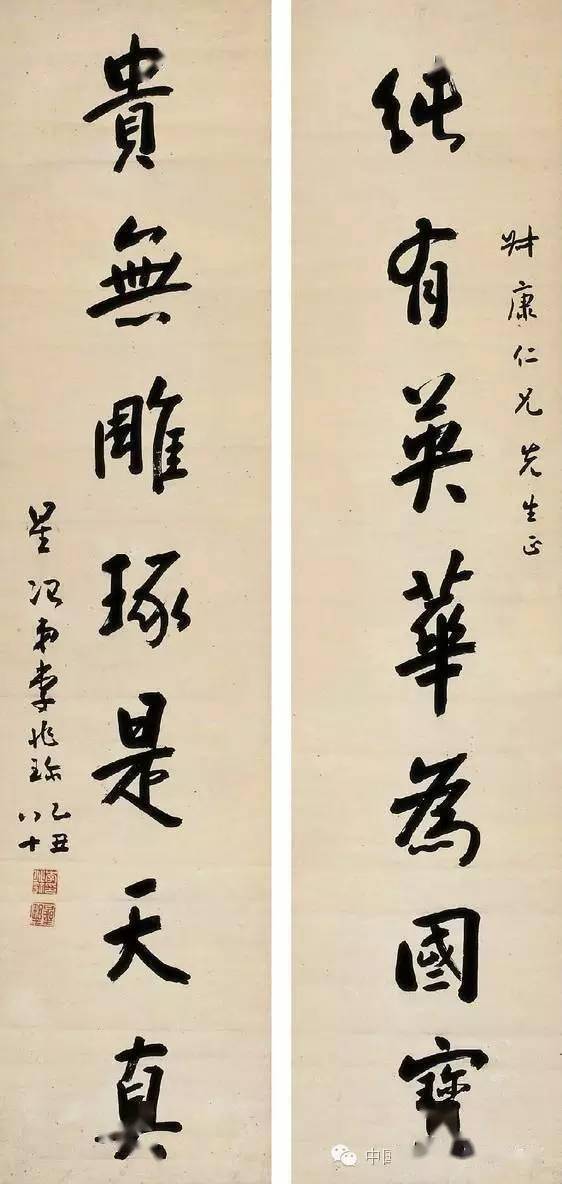 叔康仁兄先生正
純有英華為國寶
貴無雕琢是天真
星冶弟李兆珍
乙丑
八十
中